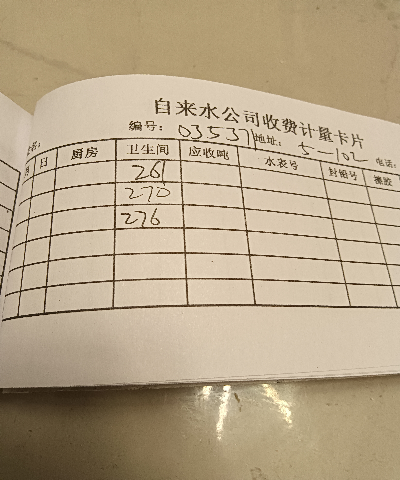 自来水公司收费计量卡片
编号: 03537 地址: 5-102 电话:
月 日 厨房 卫生间 应收吨 水表号 封铅号
261
270
276